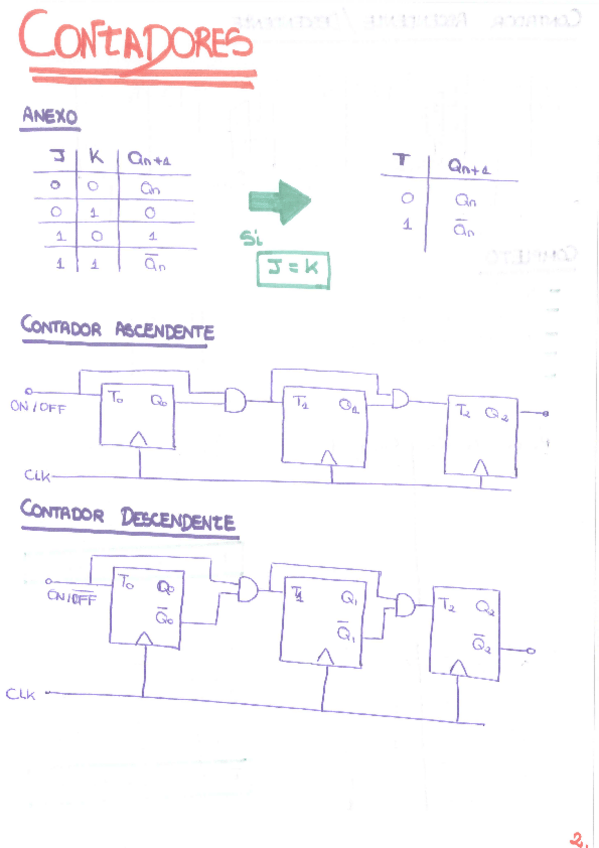 CONTADORES
ANEXO
J K Qn+1
0 0 Qn
0 1 0
1 0 1
1 1 Q̄n
Si
J = K
T Qn+1
0 Qn
1 Q̄n
CONTADOR ASCENDENTE
ON/OFF T0 Q0 T1 Q1 T2 Q2
CLK
CONTADOR DESCENDENTE
ON/O̅F̅F̅ T0 Q0 T1 Q1 T2 Q2
Q̄0 Q̄1 Q̄2
CLK
2.